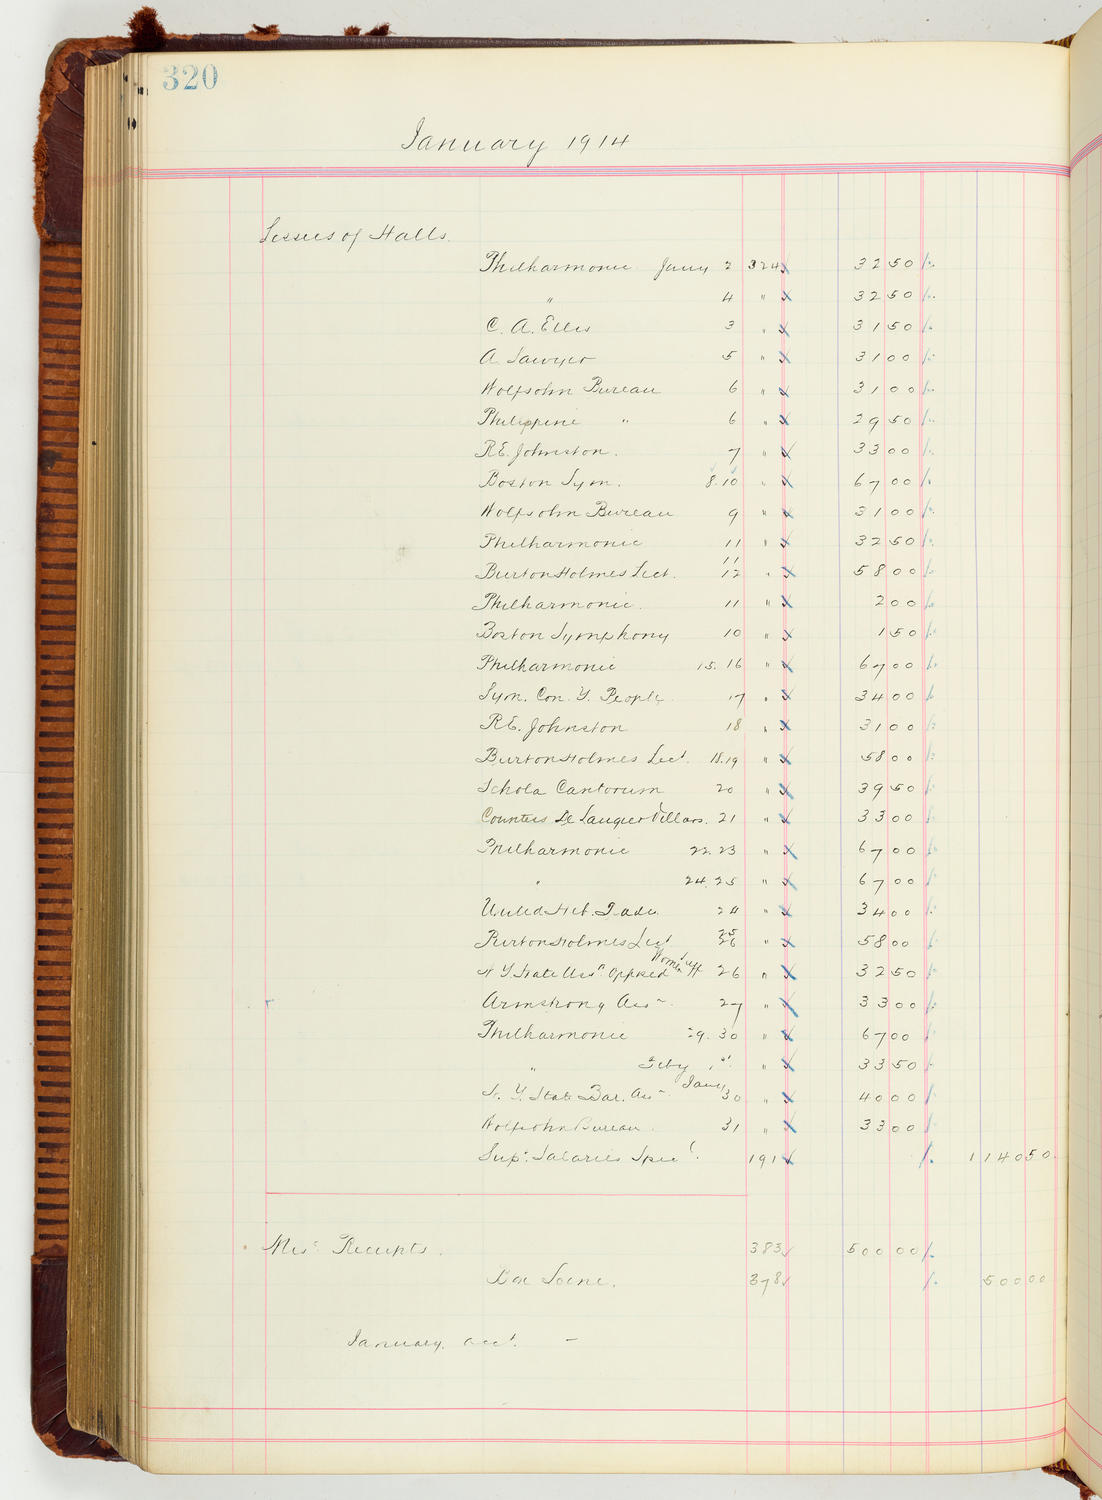 320
January 1914
Lessees of Halls.
Philharmonic Jany 2 324 32 50
" 4 " 32 50
C. A. Ellis 3 " 31 50
A. Sawyer 5 " 31 00
Wolfsohn Bureau 6 " 31 00
Philippine " 6 " 29 50
R.E. Johnston. 7 " 33 00
Boston Sym. 8.10 " 67 00
Wolfsohn Bureau 9 " 31 00
Philharmonic 11 " 32 50
Burton Holmes Lect. 11 12 " 58 00
Philharmonic. 11 " 2 00
Boston Symphony 10 " 1 50
Philharmonic 15.16 " 67 00
Sym. Con. Y. People 17 " 34 00
R.E. Johnston 18 " 31 00
Burton Holmes Lect. 18.19 " 58 00
Schola Cantorum 20 " 39 50
Countess De Laugier Villars. 21 " 33 00
Philharmonic 22.23 " 67 00
" 24.25 " 67 00
United Heb. Trade. 24 " 34 00
Burton Holmes Lect 25 26 " 58 00
N.Y. State Assn Opposed Woman Suff 26 " 32 50
Armstrong Assn. 27 " 33 00
Philharmonic 29.30 " 67 00
" Feby 1st. " 33 50
N.Y. State Bar. Assn. Jany 30 " 40 00
Wolfsohn Bureau. 31 " 33 00
Supt. Salaries Specl. 191 1140 50
Misc Receipts. 383 500 00
378 500 00
January acct. –